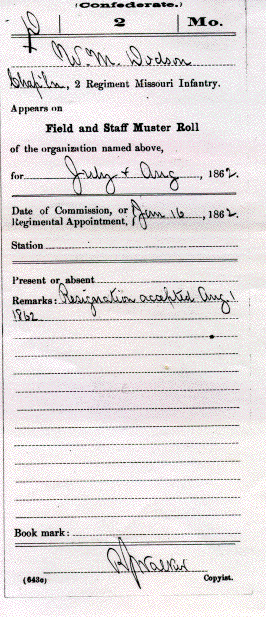 (Confederate.)
D | 2 | Mo.
W. M. Dodson
Chap'ln, 2 Regiment Missouri Infantry.
Appears on
Field and Staff Muster Roll
of the organization named above,
for July + Aug, 1862.
Date of Commission, or
Regimental Appointment, Jun 16, 1862.
Station
Present or absent
Remarks: Resignation accepted Aug 1
1862
Book mark:
Walker
(643c) Copyist.